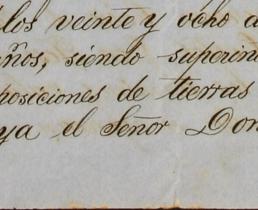 los veinte y ocho d
años, siendo superin
posiciones de tierras
ya el Señor Don